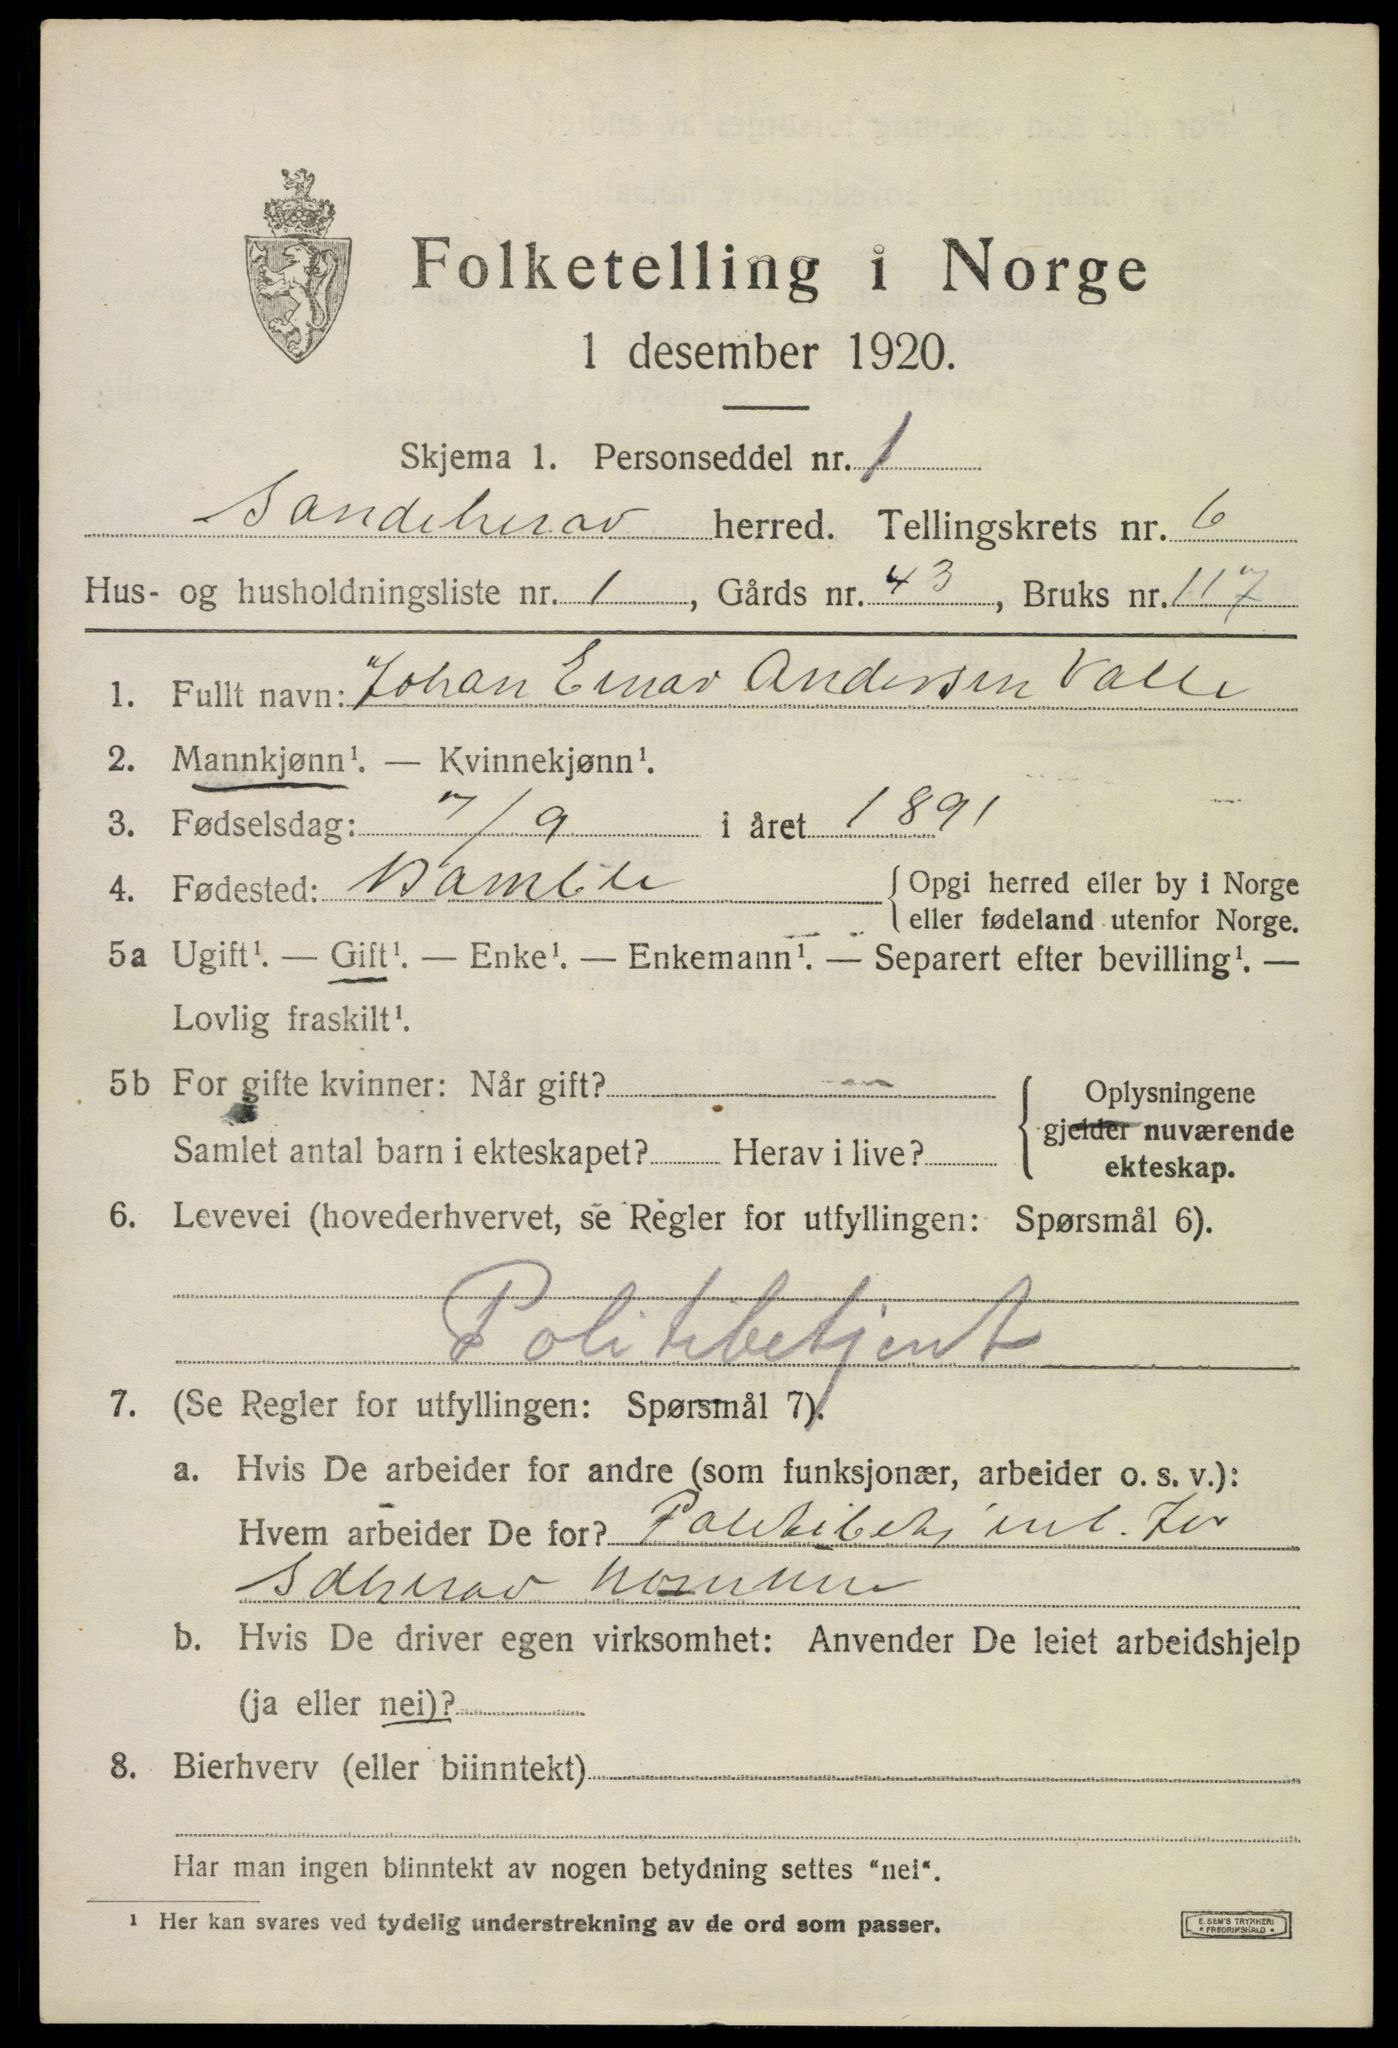 Folketelling i Norge
1 desember 1920.
Skjema 1. Personseddel nr. 1
Sandeherav herred. Tellingskrets nr. 6
Hus- og husholdningsliste nr. 1, Gårds nr. 43, Bruks nr. 117
1. Fullt navn: Johan Einar Andersen Valle
2. Mannkjønn¹. — Kvinnekjønn¹.
3. Fødselsdag: 7/9 i året 1891
4. Fødested: Bamble {Opgi herred eller by i Norge
eller fødeland utenfor Norge.
5a Ugift¹. — Gift¹. — Enke¹. — Enkemann¹. — Separert efter bevilling¹. —
Lovlig fraskilt¹.
5b For gifte kvinner: Når gift? — Oplysningene
gjelder nuværende
Samlet antal barn i ekteskapet? Herav i live?
ekteskap.
6. Levevei (hovederhvervet, se Regler for utfyllingen: Spørsmål 6).
Politibetjent
7. (Se Regler for utfyllingen: Spørsmål 7).
a. Hvis De arbeider for andre (som funksjonær, arbeider o. s. v.):
Hvem arbeider De for? Politibetjent. for
Sdherav komune
b. Hvis De driver egen virksomhet: Anvender De leiet arbeidshjelp
(ja eller nei)?
8. Bierhverv (eller biinntekt)
Har man ingen biinntekt av nogen betydning settes "nei".
¹ Her kan svares ved tydelig understrekning av de ord som passer.
E. SEM'S TRYKKERI
* FREDRIKSHALD *